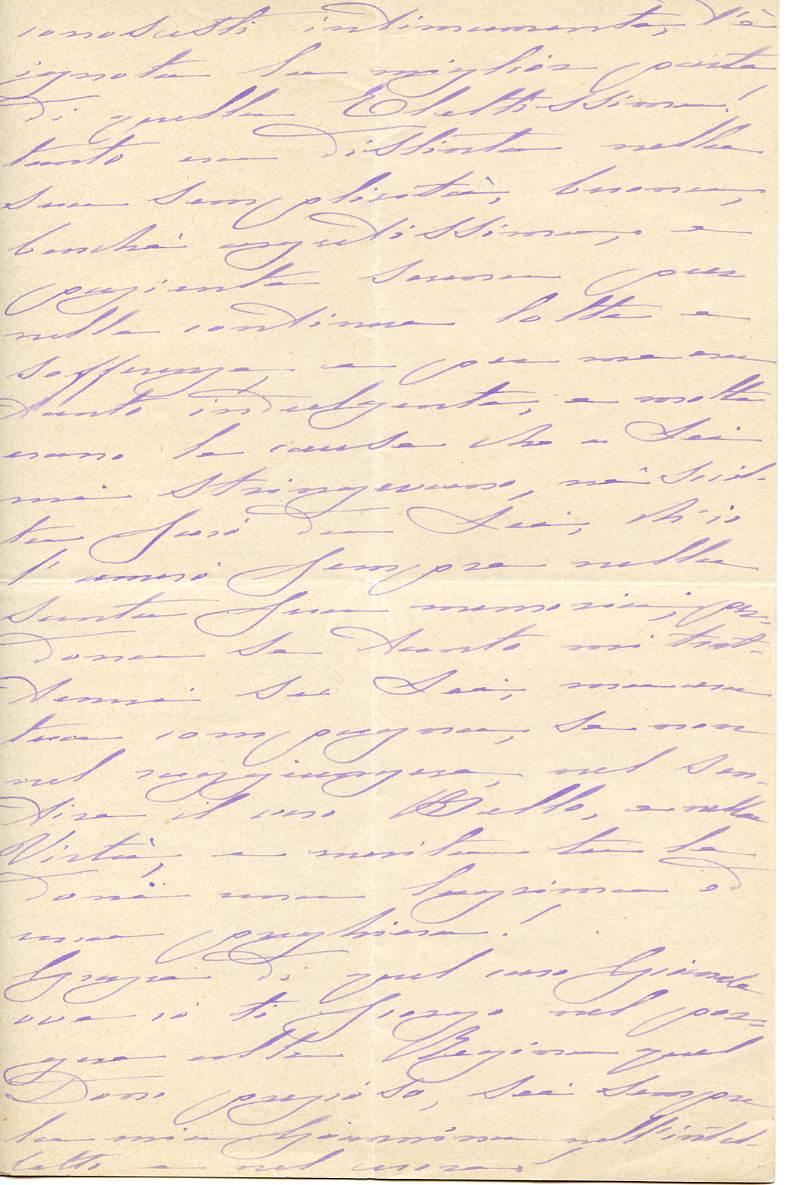 conoscesti intimamente, t'è
ignota la miglior parte
di quella Elettissima!
tanto era distinta nella
sua semplicità, buona,
benchè argutissima, e
paziente serena pur
nelle continue lotte e
sofferenze, e per me era
tanto indulgente, e molte
erano le cause che a Lei
mi stringevano, nè sciol-
ta sarò da Lei, ch'io
l'amerò sempre nella
santa Sua memoria; per-
dona se tanto mi trat-
tenni su Lei, ma era
tua compagna, se non
nel raggiungere, nel sen-
tire il vero Bello, e nella
Virtù, e merita tu le
doni una lagrima ed
una preghiera!
Grazie di quel caro Giornale
ove io ti scorgo nel por-
gere alla Regina quel
Dono prezioso, sei sempre
la mia Giannina nell'intel-
letto e nel cuore!